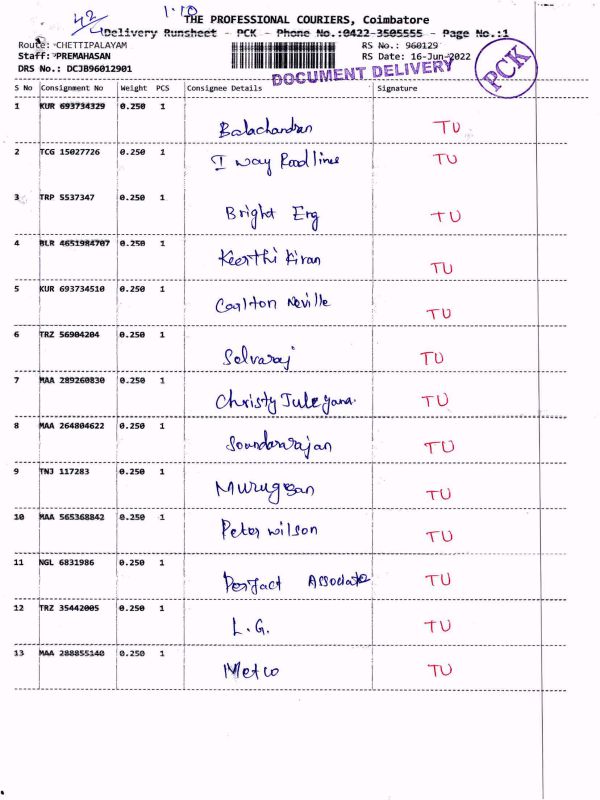 42
1·10
THE PROFESSIONAL COURIERS, Coimbatore
Delivery Runsheet - PCK - Phone No.:0422-3505555 - Page No.:1
Route: CHETTIPALAYAM RS No.: 960129
Staff: PREMAHASAN RS Date: 16-Jun-2022
DRS No.: DCJB96012901
DOCUMENT DELIVERY
PCK
S No Consignment No Weight PCS Consignee Details Signature
1 KUR 693734329 0.250 1
Balachandran TU
2 TCG 15027726 0.250 1
I way Roadlines TU
3 TRP 5537347 0.250 1
Bright Erg TU
4 BLR 4651984707 0.250 1
Keerthi Kiran TU
5 KUR 693734510 0.250 1
Carlton Neville TU
6 TRZ 56904204 0.250 1
Selvaraj TU
7 MAA 289260830 0.250 1
Christy Juleyana. TU
8 MAA 264804622 0.250 1
Soundararajan TU
9 TNJ 117283 0.250 1
Murugesan TU
10 MAA 565368842 0.250 1
Peter wilson TU
11 NGL 6831986 0.250 1
Perfact Associate TU
12 TRZ 35442005 0.250 1
L.G. TU
13 MAA 288855140 0.250 1
Metco TU